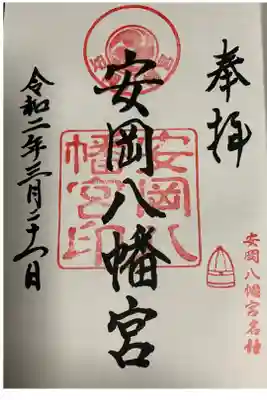 奉拝
安岡八幡宮名鐘
安岡八幡宮
安岡八
幡宮印
令和二年三月二十一日